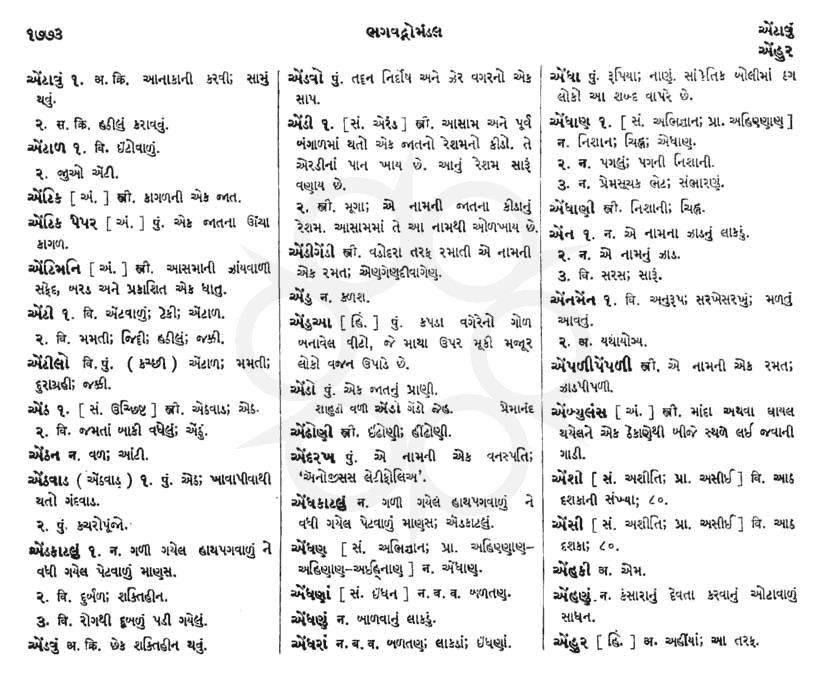 ૧૭૭૩
ભગવદ્ગોમંડલ
એંટાવું
એંહુર
એંટાવું ૧. અ. ક્રિ. આનાકાની કરવી; સામું
થવું.
૨. સ. ક્રિ. હઠીલું કરાવવું.
એંટાળ ૧. વિ. ઈંટોવાળું.
૨. જુઓ એંટી.
એંટિક [ અં. ] સ્ત્રી. કાગળની એક જાત.
એંટિક પેપર [ અં. ] પું. એક જાતના ઊંચા
કાગળ.
એંટિમનિ [ અં. ] સ્ત્રી. આસમાની ઝાંયવાળી
સફેદ, બરડ અને પ્રકાશિત એક ધાતુ.
એંટી ૧. વિ. એંટવાળું; ટેકી; એંટાળ.
૨. વિ. મમતી; જિદ્દી; હઠીલું; જક્કી.
એંટીલો વિ. પું. ( કચ્છી ) એંટાળ; મમતી;
દુરાગ્રહી; જક્કી.
એંઠ ૧. [ સં. ઉચ્છિષ્ટ ] સ્ત્રી. એંઠવાડ; એઠ.
૨. વિ. જમતાં બાકી વધેલું; એંઠું.
એંઠન ન. વળ; આંટી.
એંઠવાડ ( એંઠવાડ઼ ) ૧. પું. એઠ; ખાવાપીવાથી
થતો ગંદવાડ.
૨. પું. કચરોપૂંજો.
એંડકાટલું ૧. ન. ગળી ગયેલ હાથપગવાળું ને
વધી ગયેલ પેટવાળું માણસ.
૨. વિ. દુર્બળ; શક્તિહીન.
૩. વિ. રોગથી દૂબળું પડી ગયેલું.
એંડવું અ. ક્રિ. છેક શક્તિહીન થવું.
એંડવો પું. તદ્દન નિર્દોષ અને ઝેર વગરનો એક
સાપ.
એંડી ૧. [ સં. એરંડ ] સ્ત્રી. આસામ અને પૂર્વ
બંગાળમાં થતો એક જાતનો રેશમનો કીડો. તે
એરડીનાં પાન ખાય છે. આનું રેશમ સારૂં
વણાય છે.
૨. સ્ત્રી. મૂગા; એ નામની જાતના કીડાનું
રેશમ. આસામમાં તે આ નામથી ઓળખાય છે.
એંડીગેંડી સ્ત્રી. વડોદરા તરફ રમાતી એ નામની
એક રમત; એણુગેણુદીવાગેણુ.
એંડુ ન. કળશ.
એંડુઆ [ હિં. ] પું. કપડા વગેરેનો ગોળ
બનાવેલ વીંટો, જે માથા ઉપર મૂકી મજૂર
લોકો વજન ઉપાડે છે.
એંડો પું. એક જાતનું પ્રાણી.
શાહુડો વળી એંડો ગેંડો જેહ. પ્રેમાનંદ
એંઢોણી સ્ત્રી. ઈંઢોણી; હીંઢોણી.
એંદરખ પું. એ નામની એક વનસ્પતિ;
‘એનોજીસસ લેટીફોલિઅ’.
એંધકાટલું ન. ગળી ગયેલ હાથપગવાળું ને
વધી ગયેલ પેટવાળું માણસ; એંડકાટલું.
એંધણ [ સં. અભિજ્ઞાન; પ્રા. અહિણ્ણાણ–
અહિણાણ–અઈહ્નિાણ ] ન. એંધાણ.
એંધણાં [ સં. ઇંધન ] ન. બ. વ. બળતણ.
એંધણું ન. બાળવાનું લાકડું.
એંધરાં ન. બ. વ. બળતણ; લાકડાં; ઈંધણાં.
એંધા પું. રૂપિયા; નાણું. સાંકેતિક બોલીમાં ઠગ
લોકો આ શબ્દ વાપરે છે.
એંધાણ ૧. [ સં. અભિજ્ઞાન; પ્રા. અહિણ્ણાણ ]
ન. નિશાન; ચિહ્ન; એંધાણ.
૨. ન. પગલું; પગની નિશાની.
૩. ન. પ્રેમસૂચક ભેટ; સંભારણું.
એંધાણી સ્ત્રી. નિશાની; ચિહ્ન.
એંન ૧. ન. એ નામના ઝાડનું લાકડું.
૨. ન. એ નામનું ઝાડ.
૩. વિ. સરસ; સારૂં.
એંનમેંન ૧. વિ. અનુરૂપ; સરખેસરખું; મળતું
આવતું.
૨. અ. યથાયોગ્ય.
એંપળીપેંપળી સ્ત્રી. એ નામની એક રમત;
ઝાડપીપળી.
એંબ્યુલંસ [ અં. ] સ્ત્રી. માંદા અથવા ઘાયલ
થયેલને એક ઠેકાણેથી બીજે સ્થળે લઈ જવાની
ગાડી.
એંશો [ સં. અશીતિ; પ્રા. અસીઈ ] વિ. આઠ
દશકાની સંખ્યા; ૮૦.
એંસી [ સં. અશીતિ; પ્રા. અસીઈ ] વિ. આઠ
દશકા; ૮૦.
એંહુકી અ. એમ.
એંહુણું ન. કંસારાનું દેવતા કરવાનું ઓટાવાળું
સાધન.
એંહુર [ હિં. ] અ. અહીંયાં; આ તરફ.